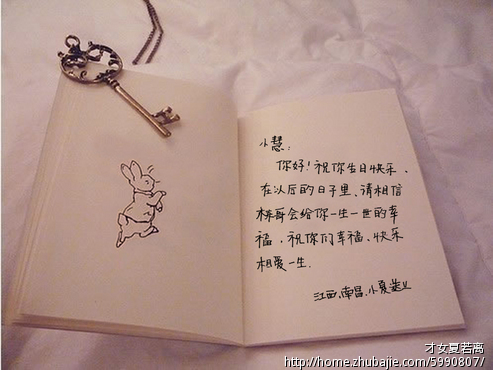 小慧：
你好！祝你生日快乐、
在以后的日子里、请相信
栋哥会给你一生一世的幸
福，祝你们幸福、快乐
相爱一生.
江西.南昌.小夏
才女夏若离
http://home.zhubajie.com/5990807/